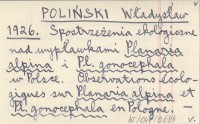 POLIŃSKI Władysław
1926. Spostrzeżenia ekologiczne
nad wypławkami Planaria
alpina i Pl. gonocephala
w Polsce. Observations écolo-
giques sur Planaria alpina et
Pl. gonocephala en Pologne. —